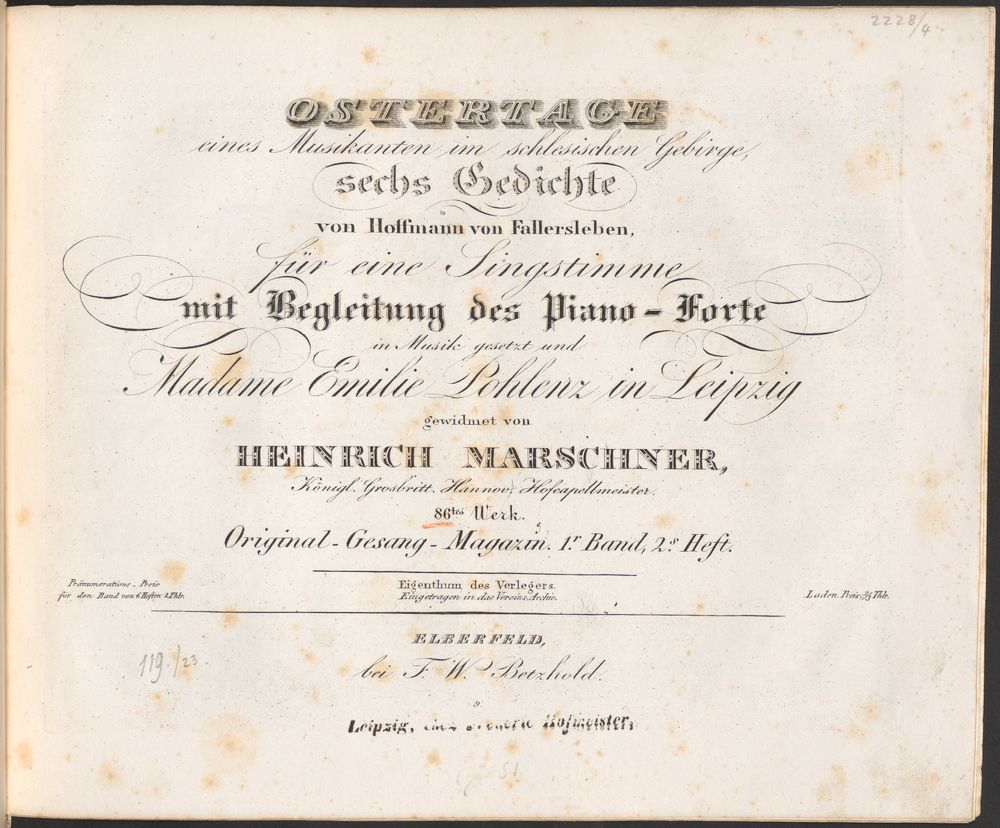 2228/4
OSTERTAGE
eines Musikanten im schlesischen Gebirge,
sechs Gedichte
von Hoffmann von Fallersleben,
für eine Singstimme
mit Begleitung des Piano-Forte
in Musik gesetzt und
Madame Emilie Pohlenz in Leipzig
gewidmet von
HEINRICH MARSCHNER,
Königl. Grosbritt. Hannov. Hofcapellmeister.
86tes Werk.
Original-Gesang-Magazin. 1r Band, 2s Heft.
Pränumerations-Preis
für den Band von 6 Heften 2 Thlr.
Eigenthum des Verlegers.
Eingetragen in das Vereins Archiv.
Laden Preis: Thlr.
ELBERFELD,
bei F. W. Betzhold.
119./23.
Leipzig, Hofmeister,
51